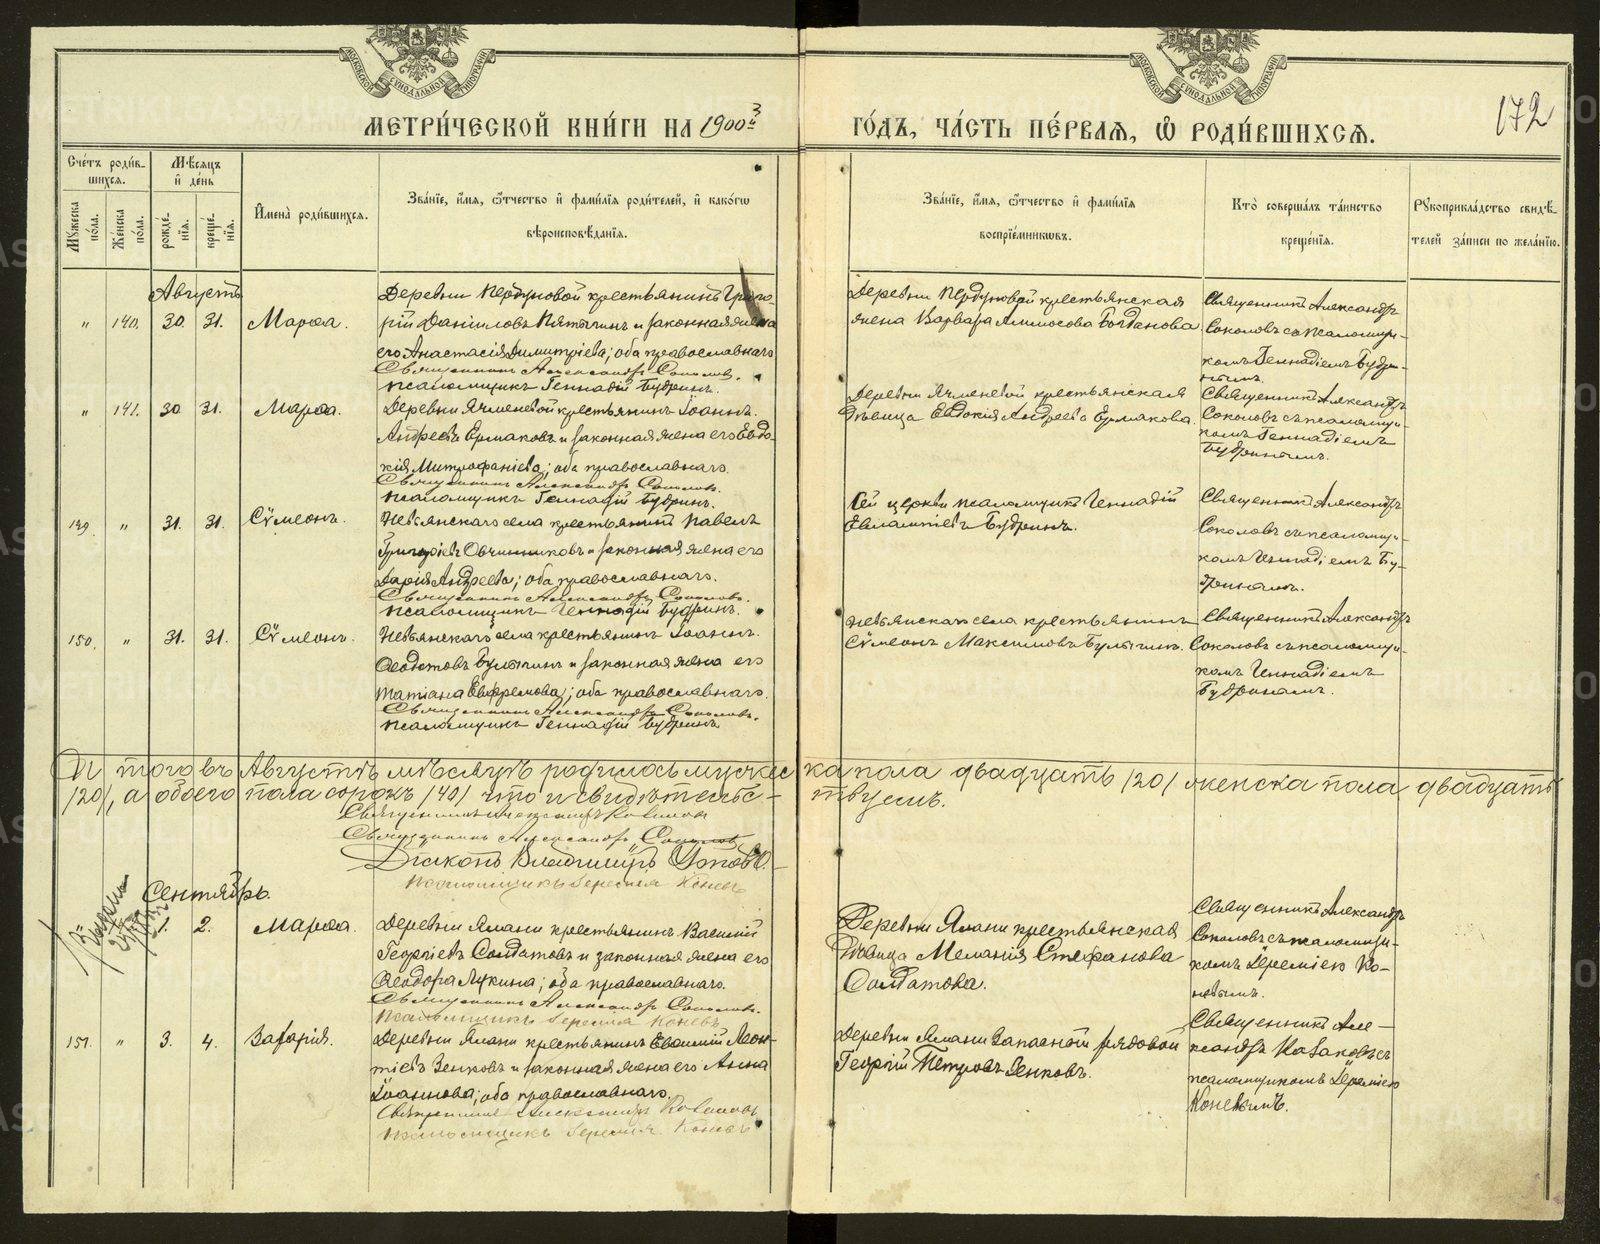 МЕТРИЧЕСКОЙ КНИГИ НА 1900 3 ГОДЪ, ЧАСТЬ ПЕРВАЯ, Ѡ РОДИВШИХСЯ.
172
Счетъ родив-
шихся.
Мѣсяцъ
и день
Мужеска пола.
Женска пола.
рожде-
нія.
креще-
нія.
Имена родившихся.
Званіе, имя, ѿчество и фамилія родителей, и какогѡ
вѣроисповѣданія.
Званіе, имя, ѿчество и фамилія
воспріемникѡвъ.
Кто совершалъ таинство
крещенія.
Рукоприкладство свидѣ-
телей записи по желанію.
Августъ
" 140. 30. 31. Марѳа.
Деревни Пердуновой крестьянинъ Григо-
рій Даніиловъ Пятыгинъ и законная жена
его Анастасія Димитріева; оба православнаго
Священникъ Александръ Соколовъ.
Псаломщикъ Геннадій Будринъ.
Деревни Пердуновой крестьянская
жена Варвара Аммосова Богданова.
Священникъ Александръ
Соколовъ съ псаломщи-
комъ Геннадіемъ Будри-
нымъ.
" 141. 30 31. Марѳа.
Деревни Ячменевой крестьянинъ Іоаннъ
Андреевъ Ермаковъ и законная жена его Евдо-
кія Митрофаніева; оба православнаго.
Священникъ Александръ Соколовъ.
Псаломщикъ Геннадій Будринъ.
Деревни Ячменевой крестьянская
дѣвица Евдокія Андреева Ермакова.
Священникъ Александръ
Соколовъ съ псаломщи-
комъ Геннадіемъ
Будринымъ.
149. " 31. 31. Сѵмеонъ.
Невьянскаго села крестьянинъ Павелъ
Григорьевъ Овчинниковъ и законная жена его
Дарія Андреева; оба православнаго.
Священникъ Александръ Соколовъ.
Псаломщикъ Геннадій Будринъ.
Сей церкви псаломщикъ Геннадій
Евлампіевъ Будринъ.
Священникъ Александръ
Соколовъ съ псаломщи-
комъ Геннадіемъ Бу-
дринымъ.
150. " 31. 31. Сѵмеонъ.
Невьянскаго села крестьянинъ Іоаннъ
Ѳеодотовъ Булыгинъ и законная жена его
Татіана Евфремова; оба православнаго.
Священникъ Александръ Соколовъ.
Псаломщикъ Геннадій Будринъ
Невьянскаго села крестьянинъ
Сѵмеонъ Максимовъ Булыгинъ.
Священникъ Александръ
Соколовъ съ псаломщи-
комъ Геннадіемъ
Будринымъ.
Итого въ Августѣ мѣсяцѣ родилось мужеска пола двадцать /20/ женска пола двадцать
/20/, а обоего пола сорокъ /40/ что и свидѣтельствуемъ.
Священникъ Александръ Соколовъ
Діаконъ Владиміръ
Псаломщикъ Іеремія Коневъ
Сентябрь.
1. 2. Марѳа.
Деревни Ялани крестьянинъ Василій
Георгіевъ Солдатовъ и законная жена его
Ѳеодора Лукина; оба православнаго.
Священникъ Александръ Соколовъ.
Псаломщикъ Іеремія Коневъ
Деревни Ялани крестьянская
дѣвица Меланія Стефанова
Солдатова.
Священникъ Александръ
Соколовъ съ псаломщи-
комъ Іереміею Ко-
невымъ.
151. " 3. 4. Захарія.
Деревни Ялани крестьянинъ Евсилій Леон-
тіевъ Зенковъ и законная жена его Анна
Іоаннова; оба православнаго.
Священникъ Александръ Казаковъ
Псаломщикъ Іеремія Коневъ
Деревни Ялани Запасной рядовой
Георгій Петровъ Зенковъ.
Священникъ Але-
ксандръ Казаковъ съ
псаломщикомъ Іереміею
Коневымъ.